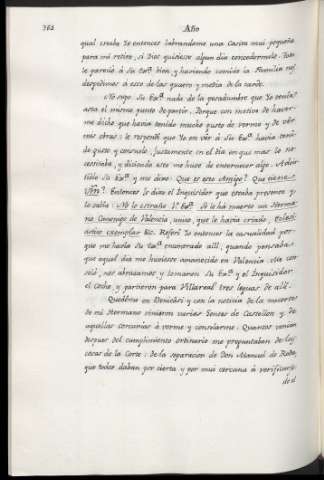 362
Año
qual estaba Yo entonces labrandome una Casita mui pequeña
para mi retiro, si Dios quisiese algun dia concedermele. Todo
le pareció à Su Exª bien, y haviendo comido la Familia nos
despedimos à eso de las quatro y media de la tarde.
No supo Su Exª nada de la pesadumbre que Yo tenia
asta el mismo punto de partir. Porque con motivo de haver-
me dicho que havia tenido mucho gusto de verme y de ver
mis obras: le respondi que Yo en vèr à Su Exª havia teni-
do gusto y consuelo, justamente en el dia en que mas lo ne-
cesitaba, y diciendo esto me huve de enternecer algo. Advir-
tiólo Su Exª y me dixo: Que es esto Amigo? Que tiene
Vm? Entonces le dixo el Inquisidor que estaba presente y
lo sabia: No lo estrañe V. Exª Se le há muerto un Herma-
no Canonigo de Valencia, unico, que le havia criado, Eclesi-
astico exemplar &c. Referi Yo entonces la casualidad por-
que me havia Su Exª encontrado alli, quando pensaba
que aquel dia me huviese amanecido en Valencia. Me con-
soló, nos abrazamos y tomaron Su Exª y el Inquisidor
el Coche, y partieron para Villareal tres leguas de alli.
Quedéme en Benicasi y con la noticia de la muerte
de mi Hermano vinieron varias Gentes de Castellon y de
aquellas cercanias à verme y consolarme. Quantos venian
despues del cumplimiento ordinario me preguntaban de las
cosas de la Corte: de la separacion de Don Manuel de Roda,
que todos daban por cierta y por mui cercana à verificarse
desd